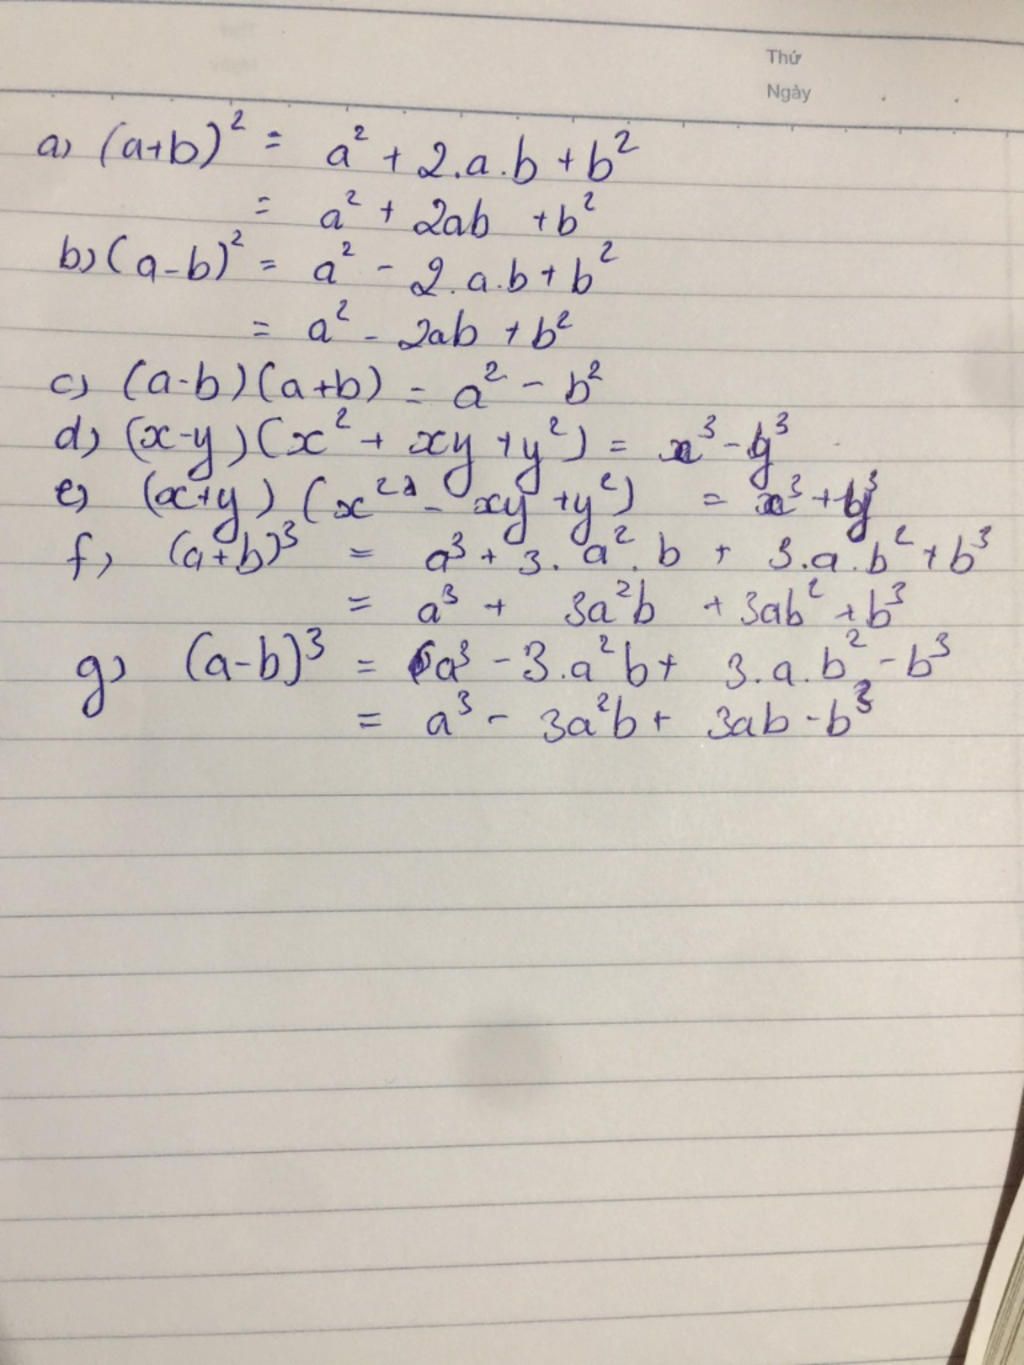 Thứ
Ngày
a) (a+b)² = a² + 2.a.b + b²
= a² + 2ab + b²
b) (a-b)² = a² - 2.a.b + b²
= a² - 2ab + b²
c) (a-b)(a+b) = a² - b²
d) (x-y)(x² + xy + y²) = x³ - y³
e) (x+y)(x² - xy + y²) = x³ + y³
f) (a+b)³ = a³ + 3.a².b + 3.a.b² + b³
= a³ + 3a²b + 3ab² + b³
g) (a-b)³ = a³ - 3.a²b + 3.a.b² - b³
= a³ - 3a²b + 3ab² - b³